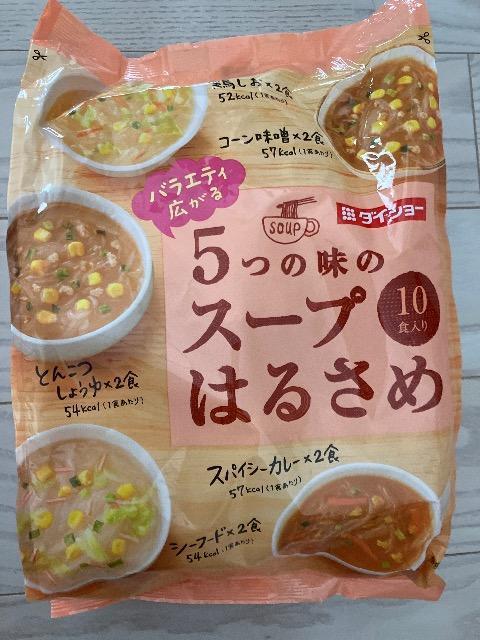 鶏しお×2食
52kcal(1食あたり)
コーン味噌×2食
57kcal(1食あたり)
バラエティ
広がる
ダイショー
SOUP
5つの味の
スープ
はるさめ
10
食入り
とんこつ
しょうゆ×2食
54kcal(1食あたり)
スパイシーカレー×2食
57kcal(1食あたり)
シーフード×2食
54kcal(1食あたり)